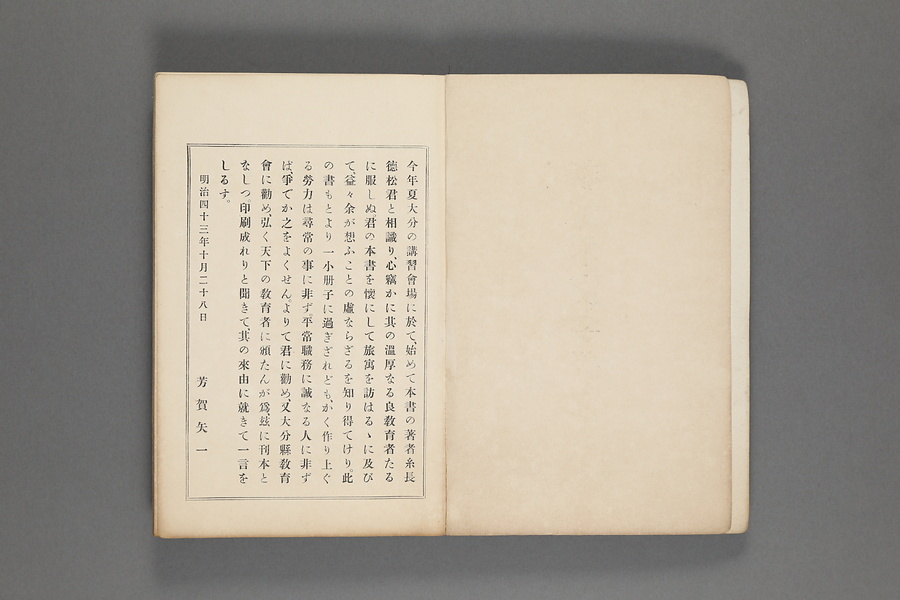 今年夏大分の講習會場に於て、始めて本書の著者糸長
德松君と相識り、心竊かに其の溫厚なる良敎育者たる
に服しぬ君の本書を懷にして旅寓を訪はるゝに及び
て、益々余が想ふことの虛ならざるを知り得てけり。此
の書もとより一小册子に過ぎざれども、かく作り上ぐ
る勞力は尋常の事に非ず。平常職務に誠なる人に非ず
ば、爭でか之をよくせん。よりて君に勸め、又大分縣敎育
會に勸め、弘く天下の敎育者に頒たんが爲、玆に刊本と
なしつ。印刷成れりと聞きて、其の來由に就きて一言を
しるす。
明治四十三年十月二十八日
芳賀矢一